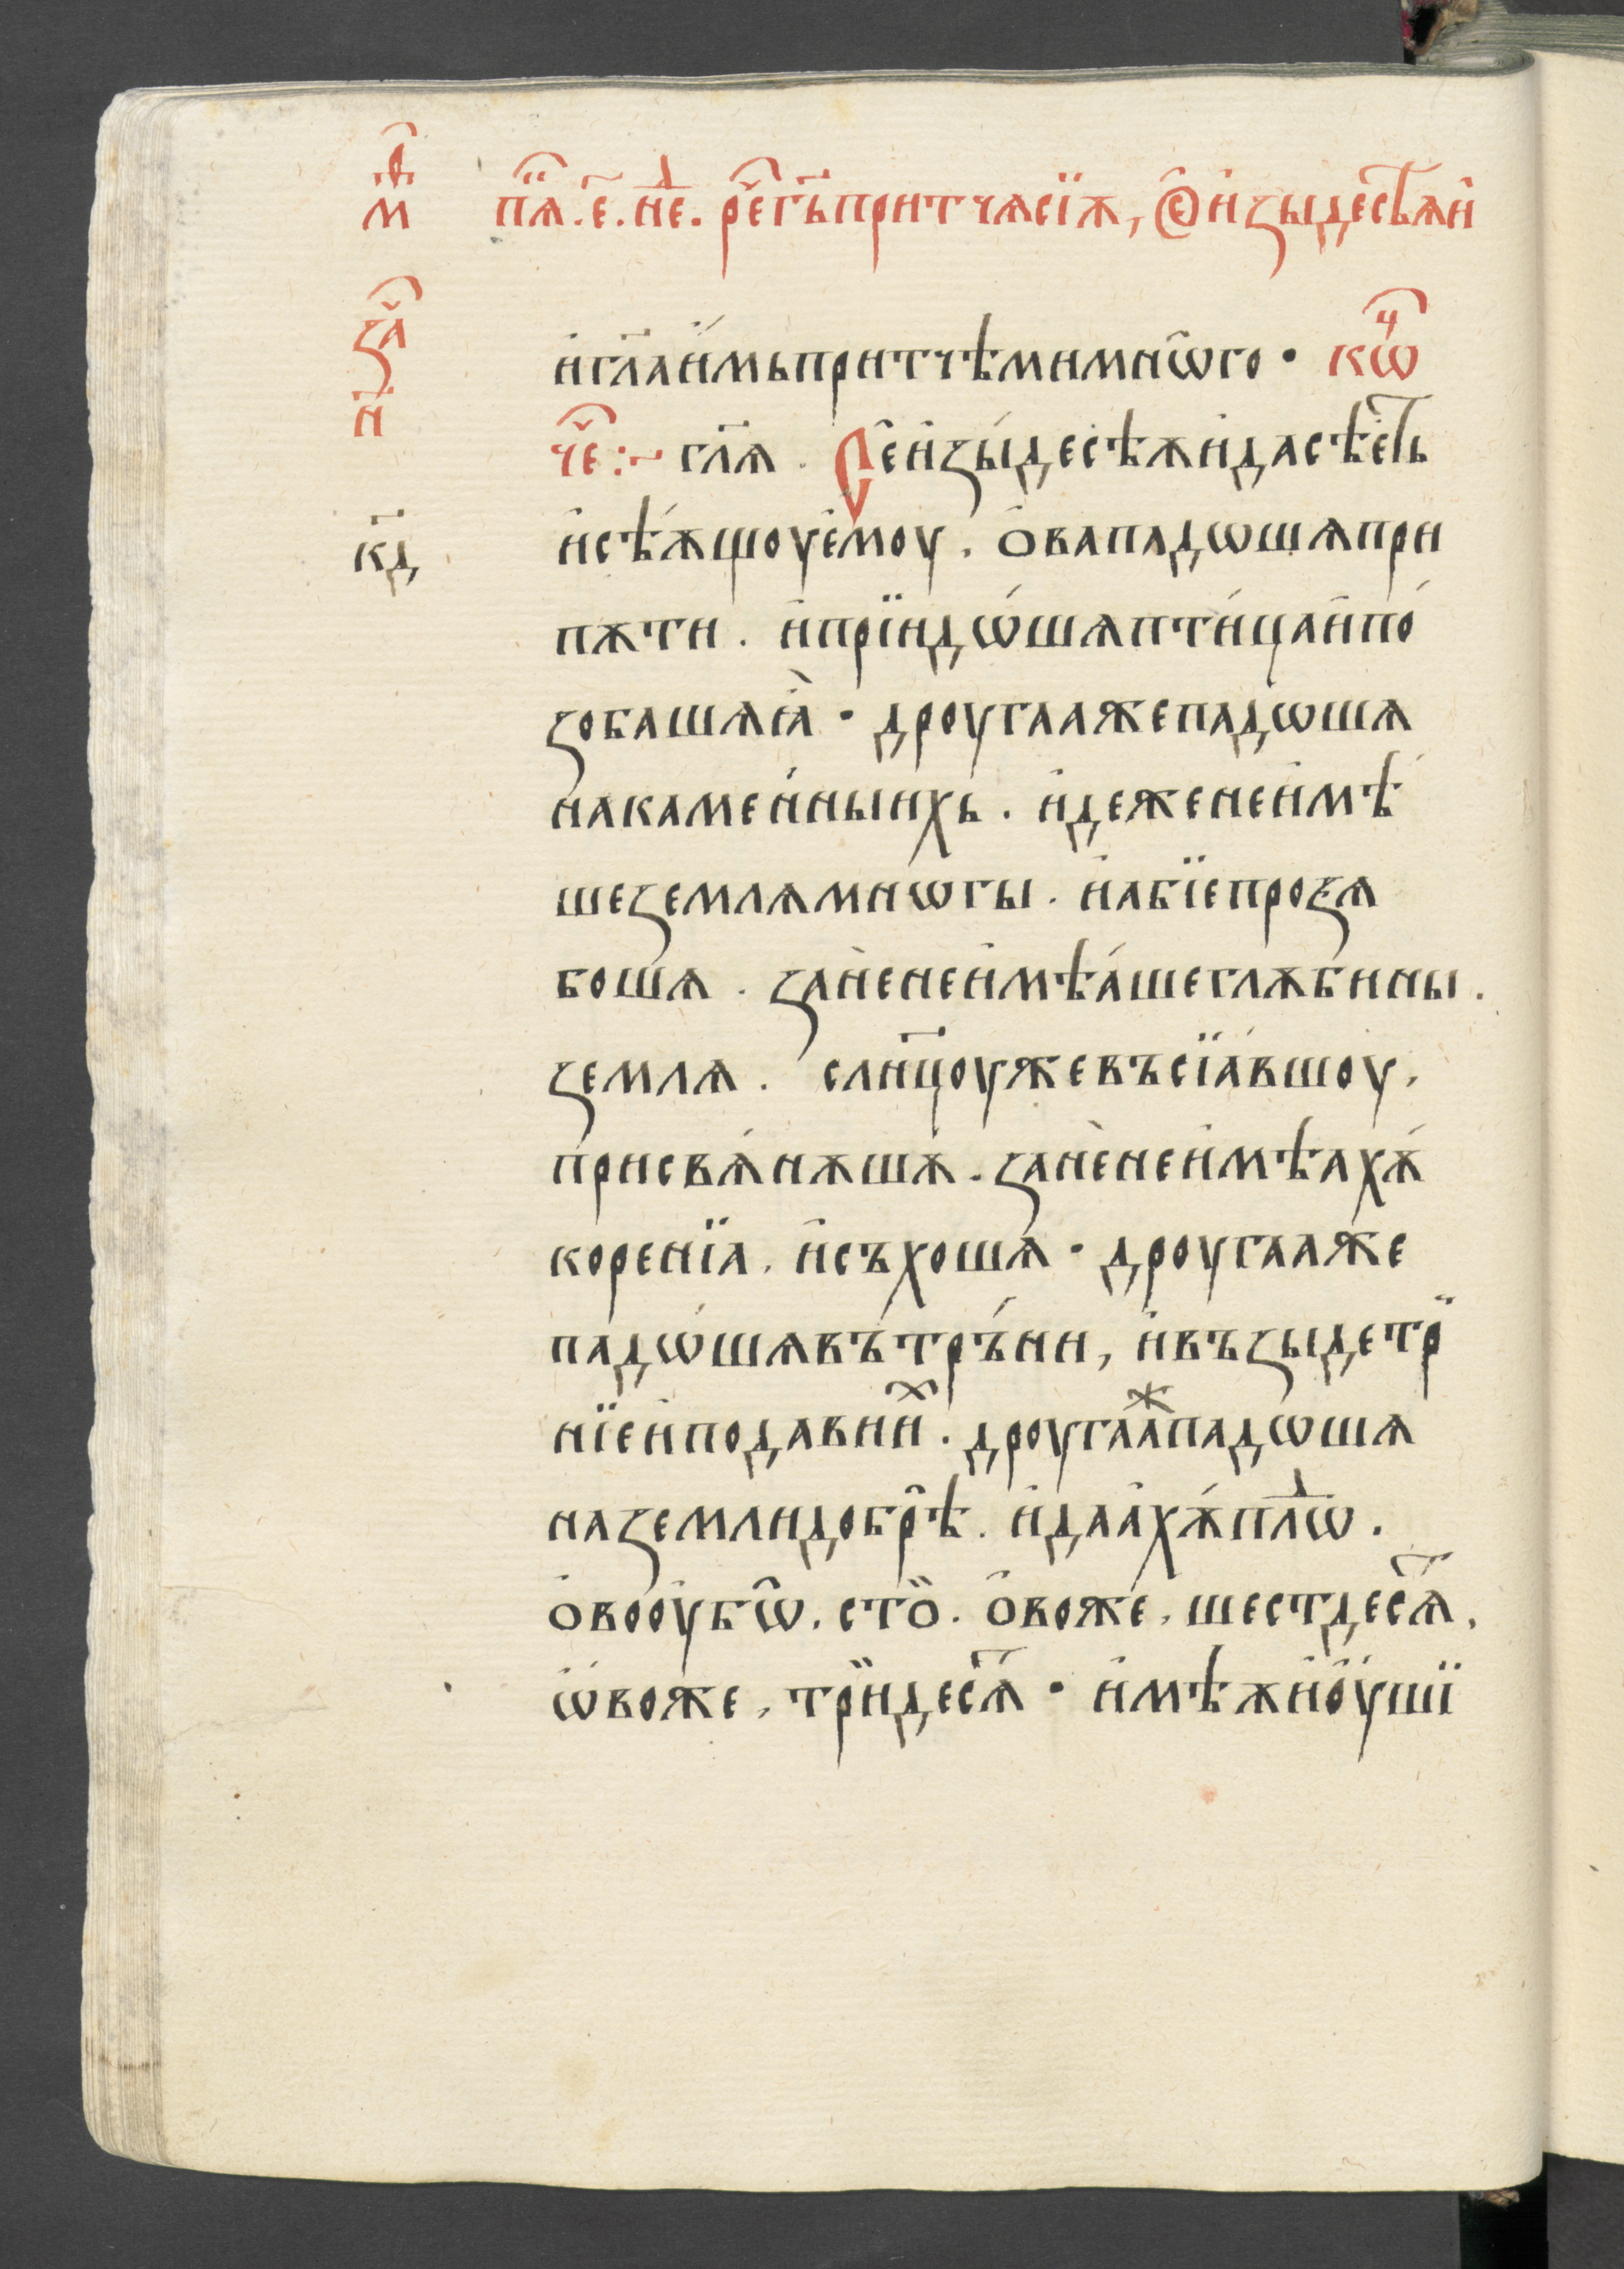 м҃в
пя҃ . е҃ . нⷣе . ре҃ г҃ь притчѫ сїѫ , Се изыде сѣѧи
за҃
н҃
и гл҃а имь притчѣми мнѡго · кѡⷩ҇
че҃ :~ гл҃ѧ . Се изыде сѣѫи да сѣеть
и сѣѫщоу емоу . ова падѡшѧ при
к҃д
пѫти . и прїидѡшѧ птица и по
зобашѧ ıа · дроугаа же падѡшѧ
на каменныихь . идеже не имѣ
ше землѧ мнѡгы . и абїе прозѧ
бошѧ . зане не имѣаше глѫбины
землѧ . слн҃цоу же въсїавшоу .
присвѧнѫшѧ . зане не имѣахѫ
коренїа . и съхошѧ · дроугаа же
падѡшѧ въ тръни , и възыде тръ
нїе и подави иⷯ . дроугааⷤ падѡшѧ
на земли добрѣ . и даахѫ плⷪѡ .
ово оубѡ . сто . овоже . шестдесѧ .
ѡвоже . тридесѧ · имѣѫи оуши